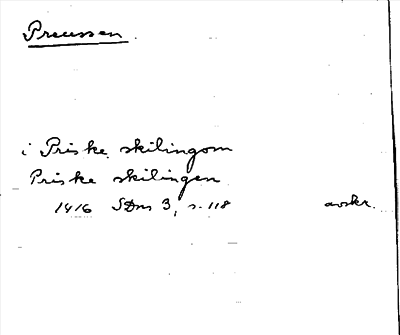 Preussen.
i Priske skilingom
Priske skilingen
1416 SDns 3, s. 118 avskr.